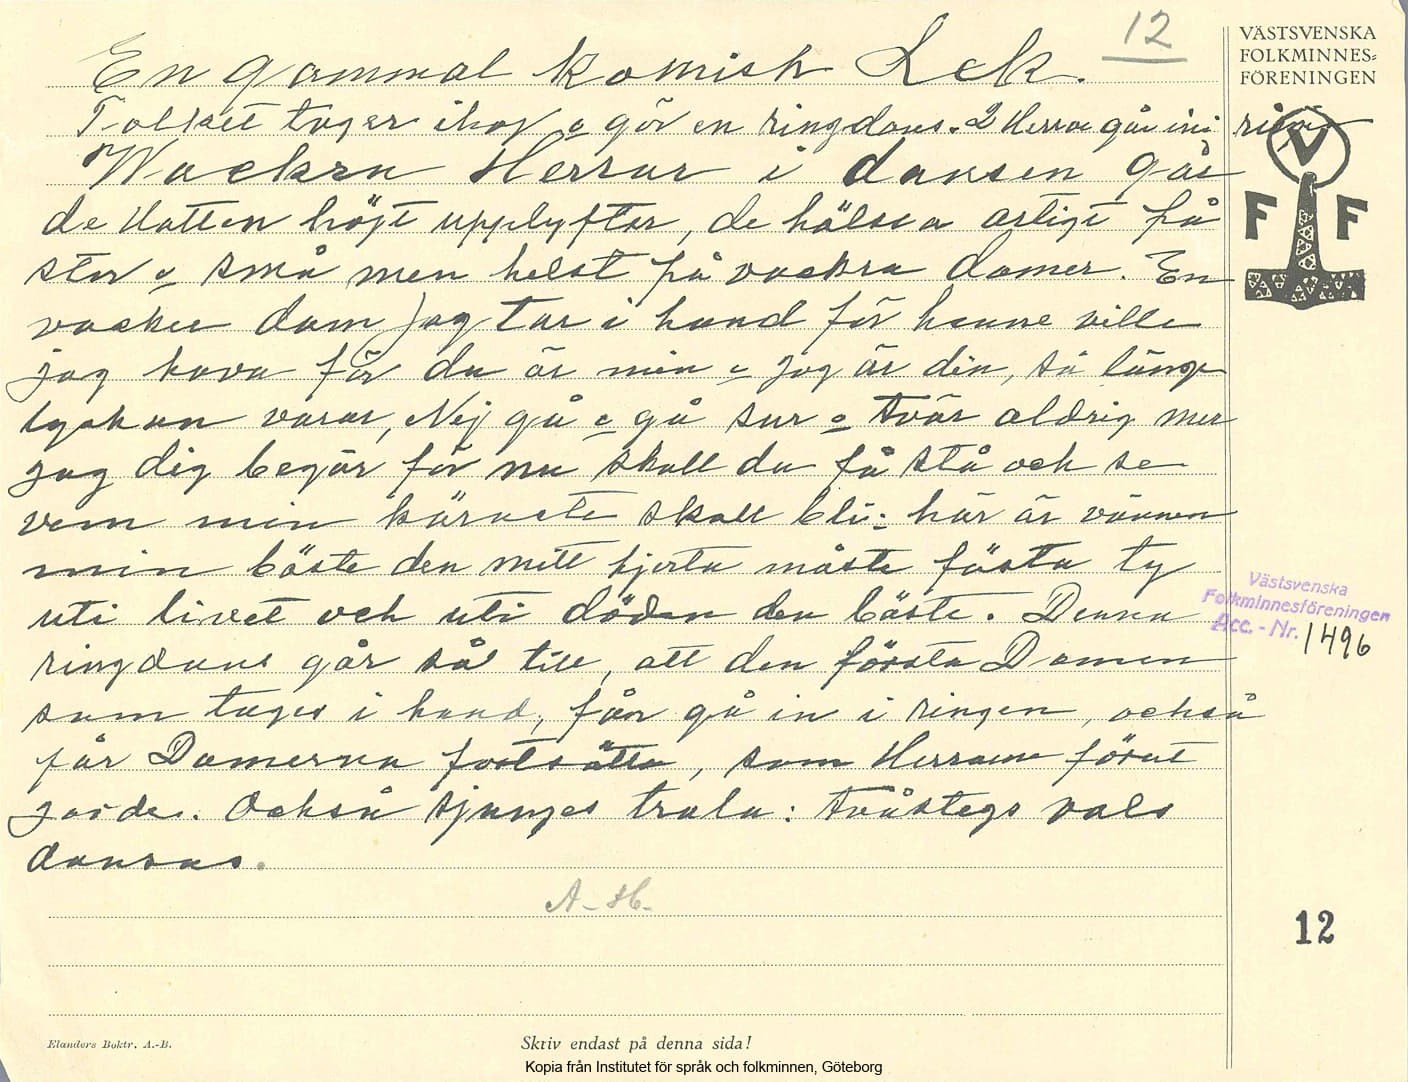 12
VÄSTSVENSKA
FOLKMINNES=
FÖRENINGEN
En gammal komisk Lek.
Folket tager ihop o gör en ringdans. 2 Herrar går in i ringen
Wackra Herrar i dansen gås
de Hatten högt upplyfter, de hälsa artigt på
stor o små men helst på vackra damer. En
vacker dam jag tar i hand för henne ville
jag hava för du är min o jag är din, så länge
lyckan varar, Nej gå o gå sur o tvär aldrig mer
jag dig begär för nu skall du få stå och se
vem min käraste skall bli: här är vännen
min bäste den mitt hjerta måste fästa ty
uti livet och uti döden den bäste. Denna
ringdans går så till, att den första Damen
som tages i hand, får gå in i ringen, också
får Damerna fortsätta, som Herrarne förut
gjorde. Också sjunges trala: tvåstegs vals
dansas.
A-H-
V
F F
Västsvenska
Folkminnesföreningen
Acc.-Nr. 1496
12
Elanders Boktr. A.-B.
Skriv endast på denna sida!
Kopia från Institutet för språk och folkminnen, Göteborg